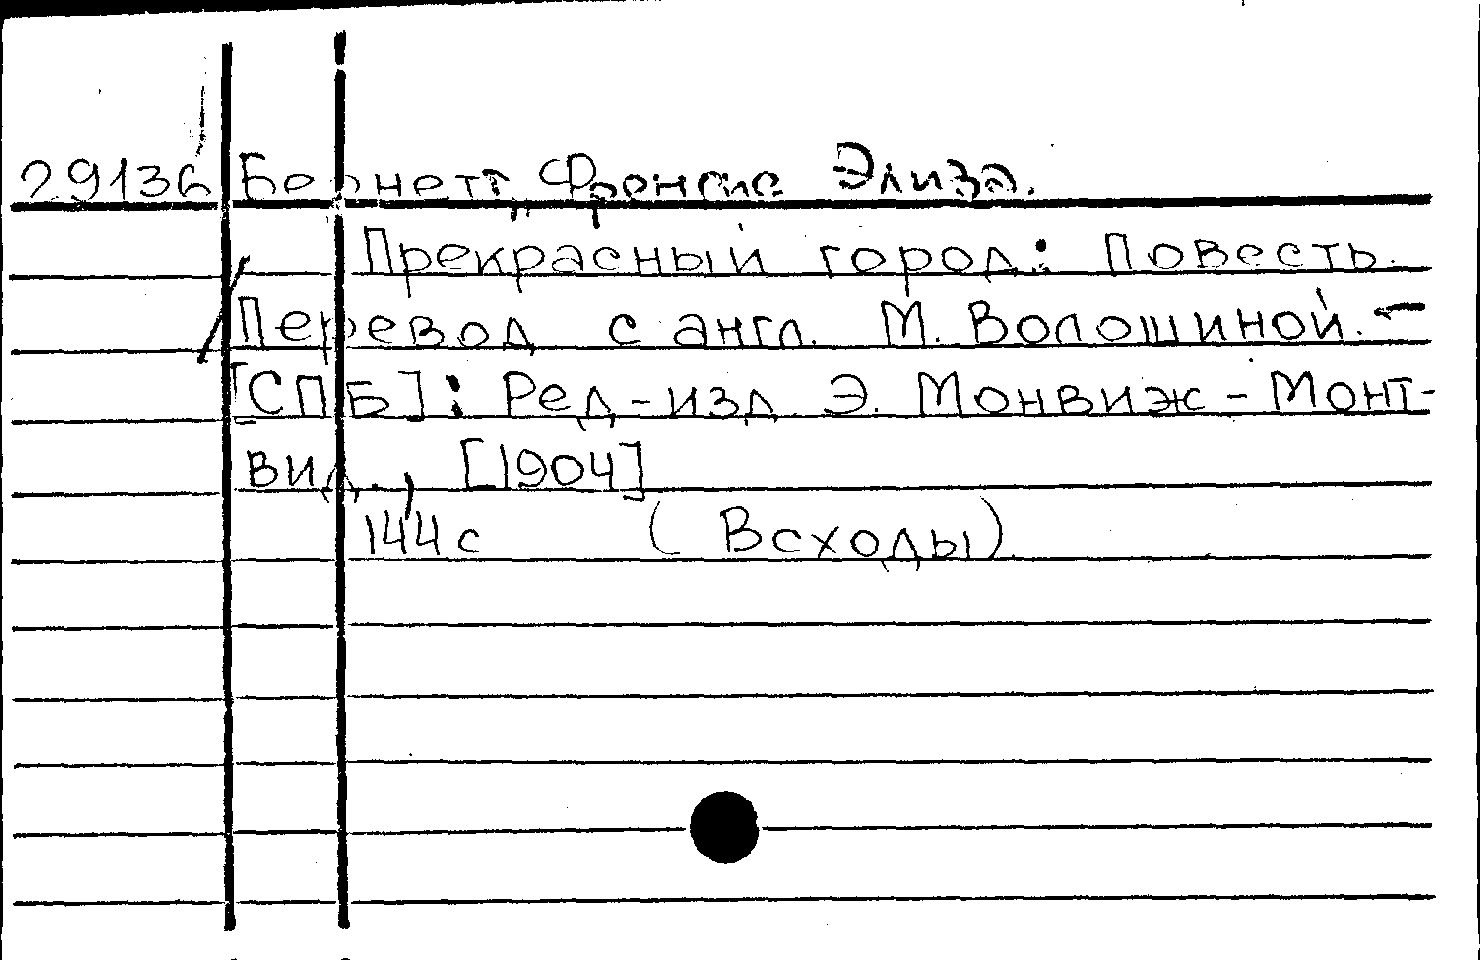 29136 Бернетт, Френсис Элиза.
Прекрасный город: Повесть.
/ Перевод с англ. М. Волошиной. –
[СПБ]: Ред-изд. Э. Монвиж-Монт-
вид., [1904]
144 с (Всходы)